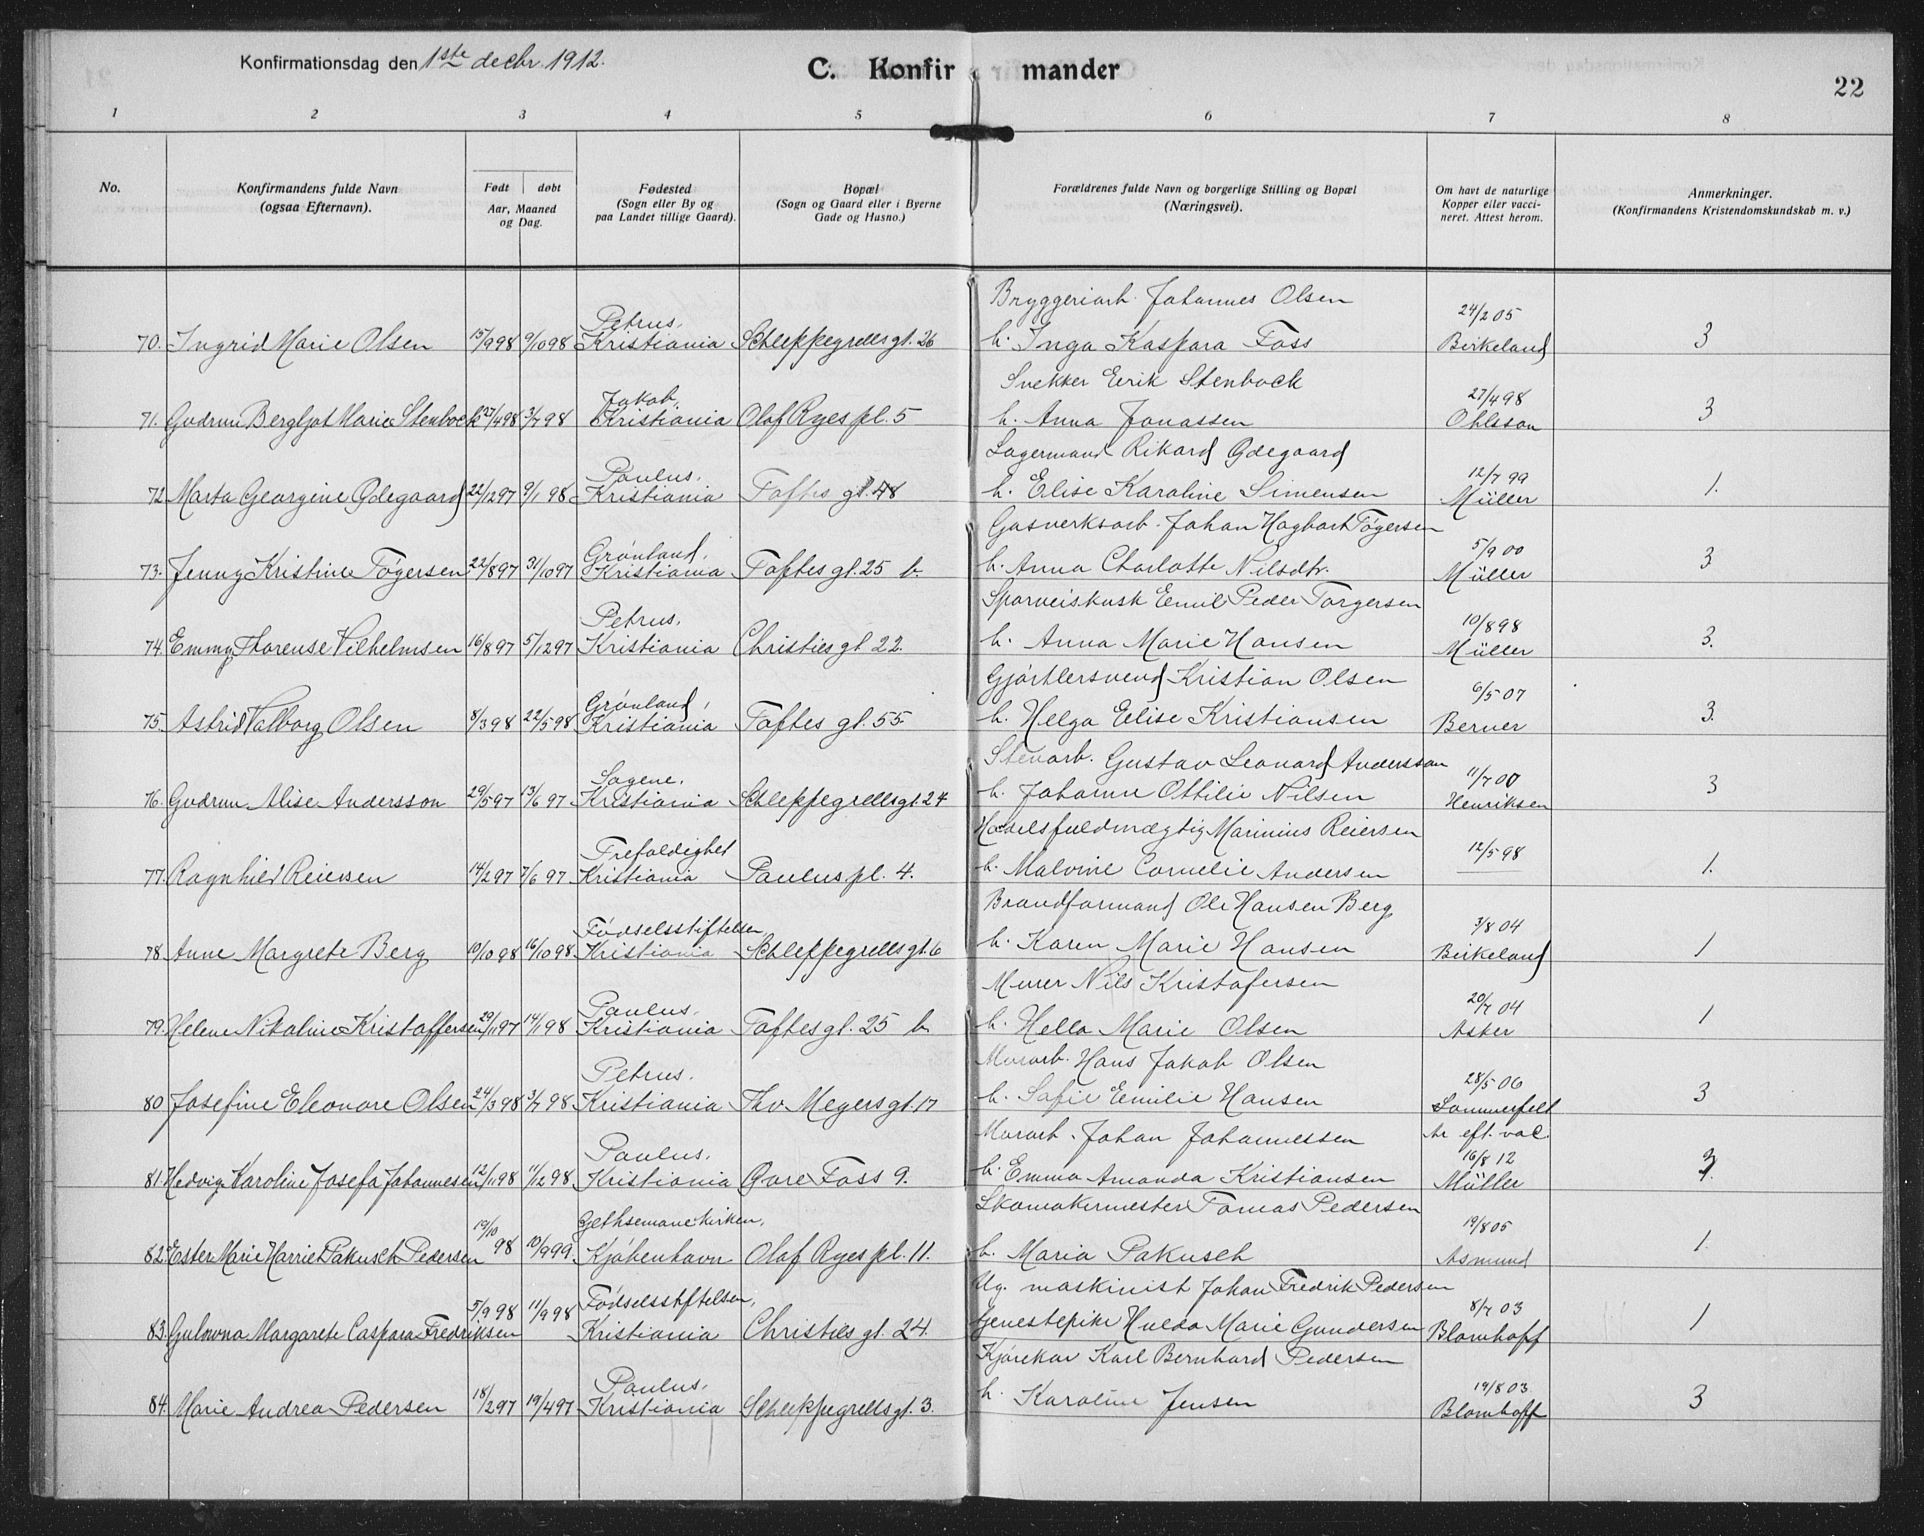 Konfirmationsdag den 1ste decbr. 1912.
C. Konfirmander
22
1 2 3 4 5 6 7 8
No.
Konfirmandens fulde Navn (ogsaa Efternavn).
Født døbt Aar, Maaned og Dag.
Fødested (Sogn eller By og paa Landet tillige Gaard).
Bopæl (Sogn og Gaard eller i Byerne Gade og Husno.)
Forældrenes fulde Navn og borgerlige Stilling og Bopæl (Næringsvei).
Om havt de naturlige Kopper eller vaccineret. Attest herom.
Anmerkninger. (Konfirmandens Kristendomskundskab m. v.)
Petrus, Bryggeriarb. Johannes Olsen 24/2 05
70. Ingrid Marie Olsen 15/9 98 9/10 98 Kristiania Schleppegrellsgt. 26 h. Inga Kaspara Foss Birkeland 3
Jakob, Snekker Eerik Stenbock 27/4 98
71. Gudrun Bergljot Marie Stenbock 27/4 98 3/7 98 Kristiania Olaf Ryes pl. 5 h. Anna Jonassen Ohlsson 3
Paulus, Lagermand Rikard Ødegaard 12/7 99
72. Marta Georgine Ødegaard 22/12 97 9/1 98 Kristiania Toftes gt. 48 h. Elise Karoline Simensen Müller 1.
Grønland, Gasverksarb. Johan Hagbart Tøgersen 5/9 00
73. Jenny Kristine Tøgersen 22/8 97 31/10 97 Kristiania Toftes gt. 25 b. h. Anna Charlotte Nilsdtr. Müller 3
Petrus, Sporveiskusk Eemil Peder Torgersen 10/8 98
74. Emmy Thorense Vilhelmsen 16/8 97 5/12 97 Kristiania Christies gt 22. h. Anna Marie Hansen Müller 3.
Grønland, Gjørtlersvend Kristian Olsen 6/5 07
75. Astrid Valborg Olsen 8/3 98 22/5 98 Kristiania Toftes gt. 55. h. Helga Eelise Kristiansen Berner 3.
Sagene, Stenarb. Gustav Leonard Andersson 11/7 00
76. Gudrun Alise Andersson 29/5 97 13/6 97 Kristiania Schleppegrellsgt. 24 h. Johanne Ottilie Nilsen Henriksen 3
Trefoldighet Handelsfuldmægtig Marinius Reiersen 12/5 98
77. Ragnhild Reiersen 14/2 97 7/6 97 Kristiania Paulus pl. 4. h. Malvine Cornelie Andersen 1.
Fødselsstiftelsen, Brandformand Ole Hansen Berg 3/8 04
78. Anne Margrete Berg 10/10 98 16/10 98 Kristiania Schleppegrellsgt. 6 h. Karen Marie Hansen Birkeland 1
Paulus, Murer Nils Kristofersen 20/7 04
79. Helene Nikoline Kristoffersen 29/11 97 14/1 98 Kristiania Toftes gt. 25 b h. Hella Marie Olsen Asker 1
Petrus. Murarb. Hans Jakob Olsen 28/5 06
80 Josefine Eleonore Olsen 24/3 98 3/7 98 Kristiania Thv Meyers gt. 17 h. Sofie Eemilie Hansen Sommerfelt 3
Paulus, Murarb. Johan Johannessen Ar eft. vac. 16/8 12
81. Hedvig Karoline Josefa Johannesen 12/11 98 11/12 98 Kristiania Øvre Foss 9. h. Emma Amanda Kristiansen Müller
Gethsemanekirken, Skomakermester Tomas Pedersen 19/8 05
82. Ester Marie Harriet Pakusch Pedersen 19/10 98 10/9 99. Kjøbenhavn Olaf Ryes pl. 11. h. Maria Pakusch Asmund 1.
Fødselsstiftelsen, Ug. maskinist Johan Fredrik Pedersen 8/7 03
83. Gulowna Margarete Caspara Fredriksen 5/9 98 11/9 98 Kristiania Christies gt. 24. tjenestepike Hulda Marie Gundersen Blomhoff 1
Paulus, Kjørekar Karl Bernhard Pedersen 19/8 03
84. Marie Andrea Pedersen 18/2 97 19/4 97 Kristiania Schleppegrellsgt. 3. h. Karoline Jensen Blomhoff 3